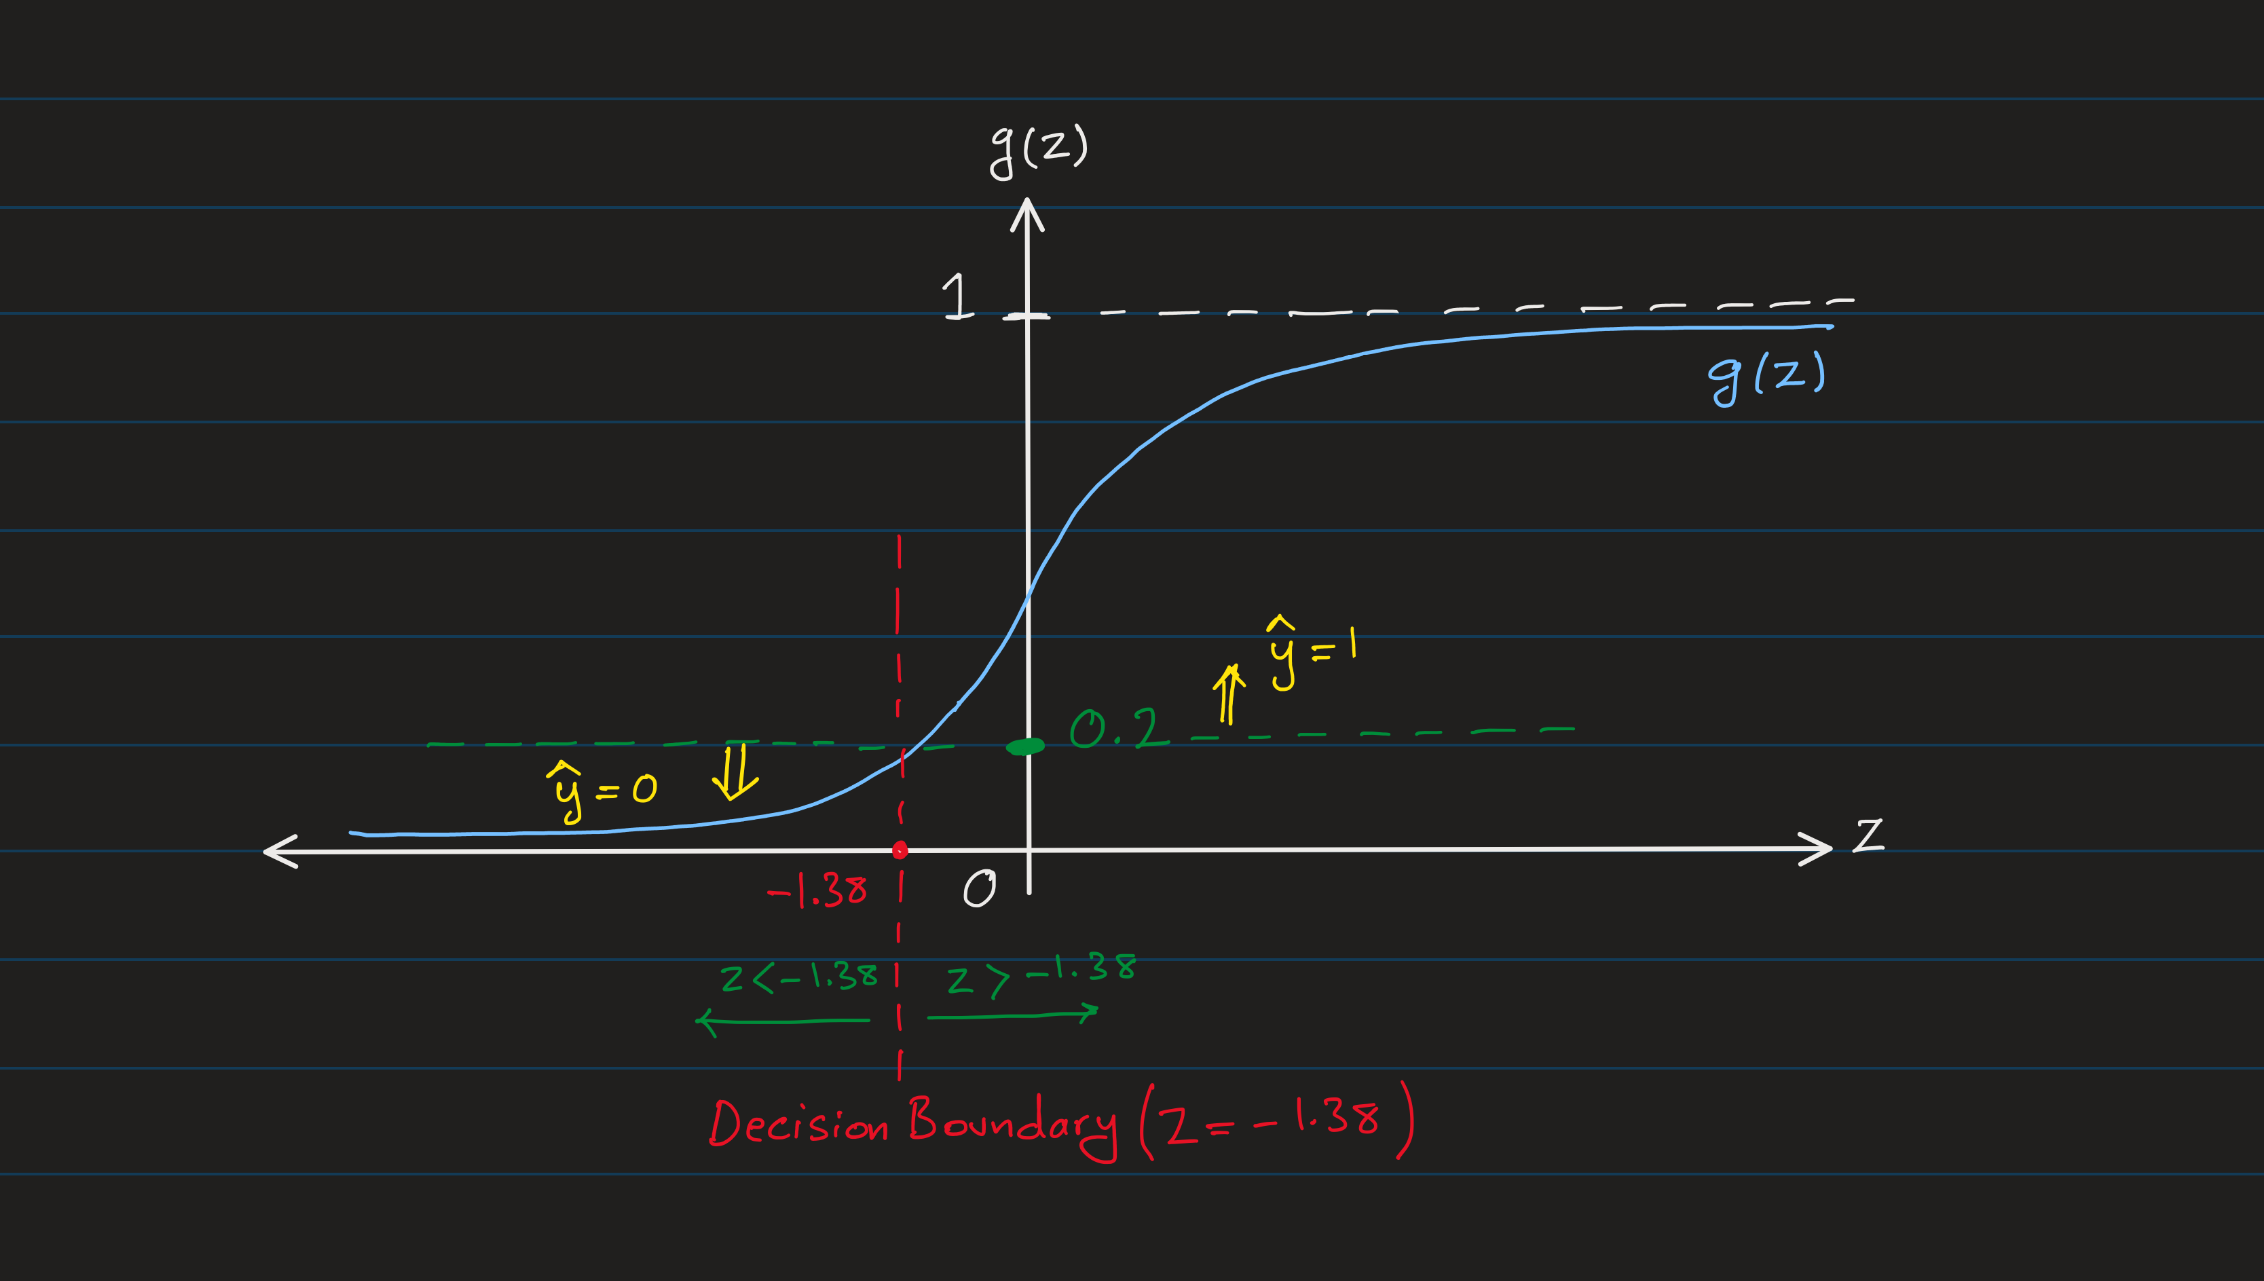 g(z)
1
g(z)
ŷ=1
0.2
ŷ=0
z
-1.38
0
z<-1.38
z>-1.38
Decision Boundary (z=-1.38)